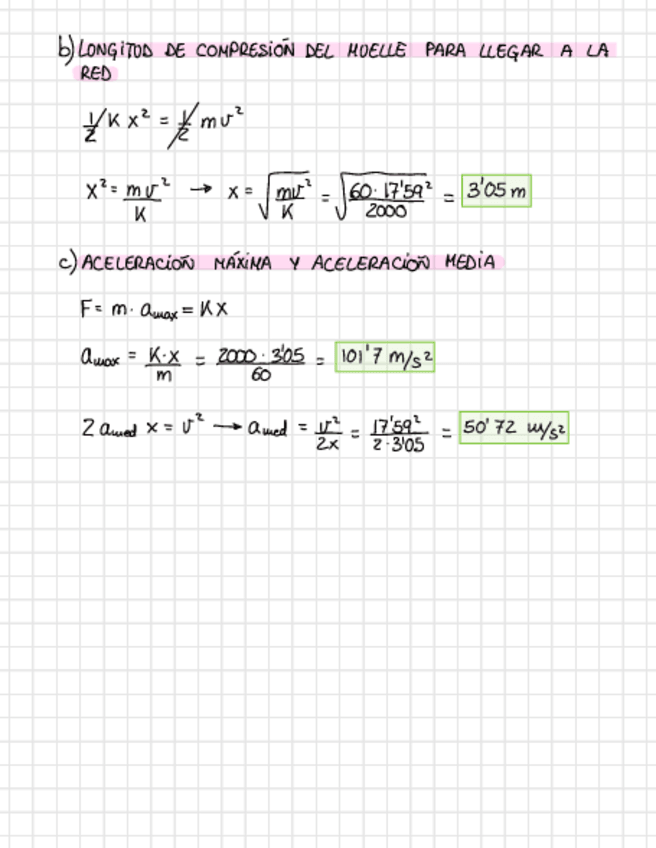 b) LONGITUD DE COMPRESIÓN DEL MUELLE PARA LLEGAR A LA
RED
1/2 K x² = 1/2 mv²
x² = mv²/K → x = √(mv²/K) = √(60·17'59²/2000) = 3'05 m
c) ACELERACIÓN MÁXIMA Y ACELERACIÓN MEDIA
F = m · amax = Kx
amax = K·x/m = 2000·3'05/60 = 101'7 m/s²
2 amed x = v² → amed = v²/2x = 17'59²/2·3'05 = 50'72 m/s²